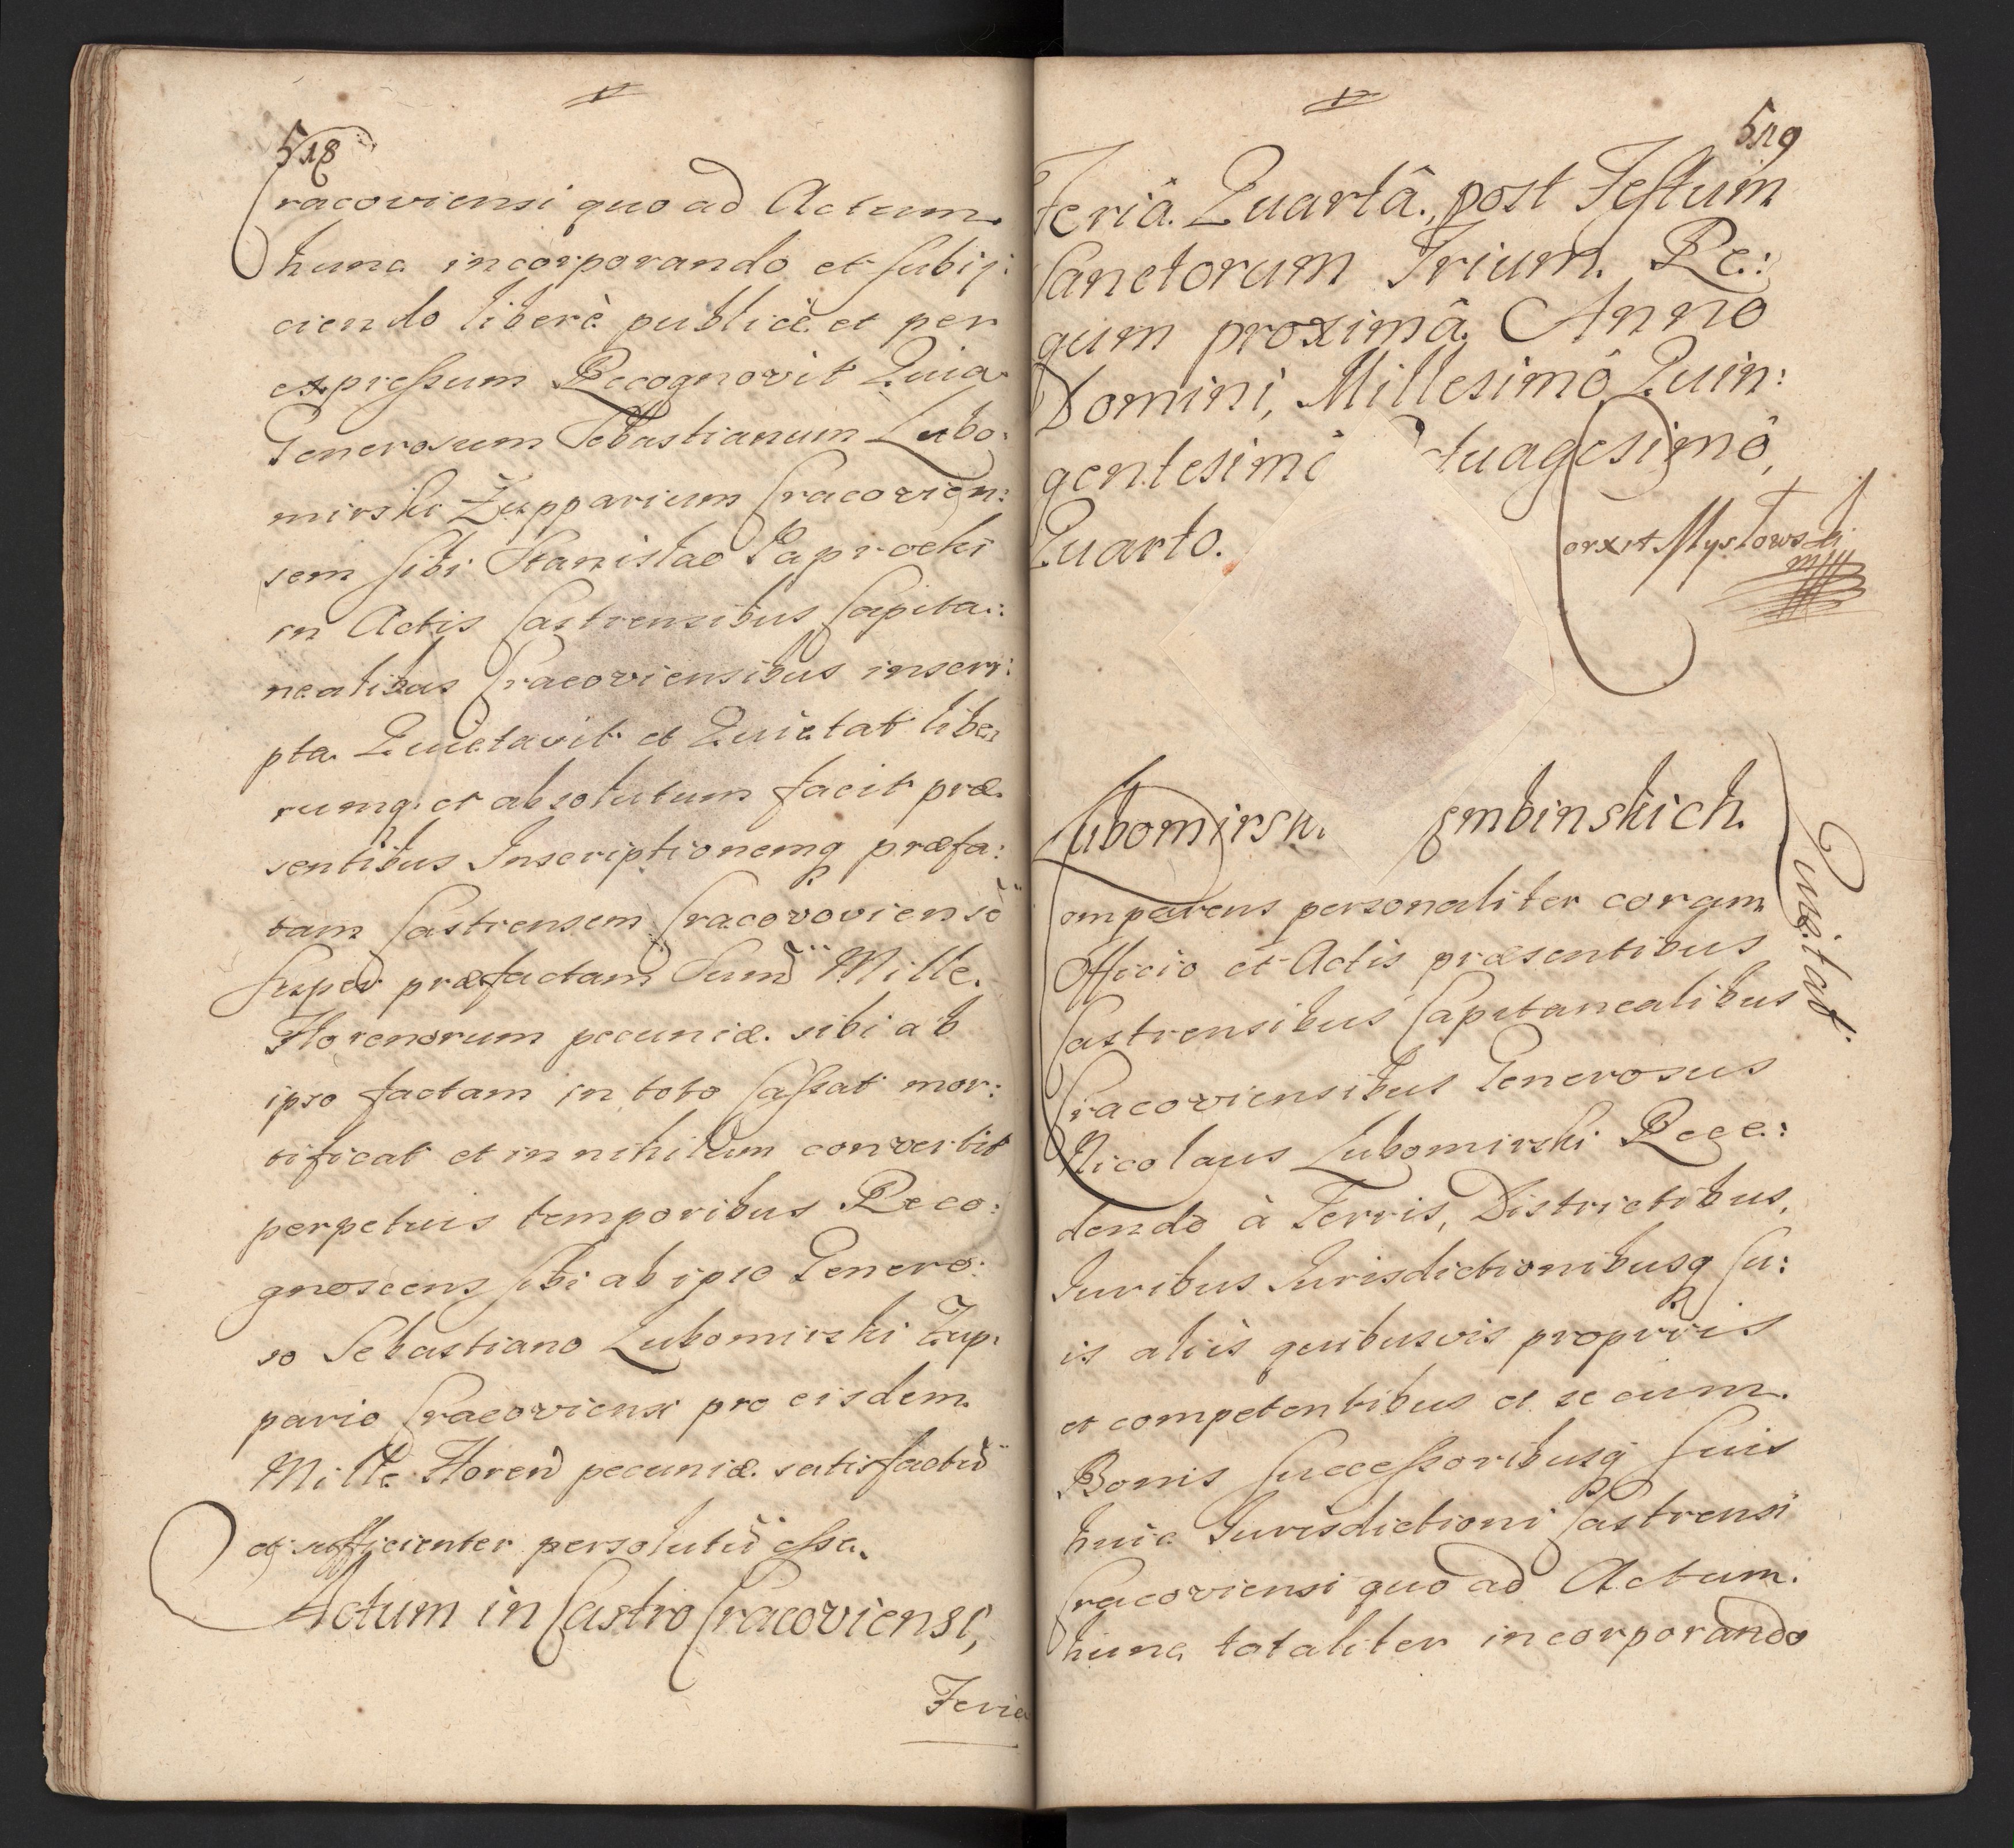 518
Cracoviensi quo ad Actum
hunc incorporando et subij:
ciendo liberè publicè et per
expressum Recognovit Quia
Generosum Sebastianum Lubo:
mirski Żupparium Cracovien:
sem sibi Stanislao Paprocki
in Actis Castrensibus Capita:
nealibus Cracoviensibus inscri:
pta Quietavit et Quietat libe:
rumq. et absolutum facit præ
sentibus Inscriptionemq præfa:
tam Castrensem Cracovoviensẽ
super præfactam Sum̃ Mille
Florenorum pecuniæ sibi ab
ipso factam in toto Cassat mor:
tificat et in nihilum convertit
perpetuis temporibus Reco:
gnoscens sibi ab ipso Genero:
so Sebastiano Lubomirski Zup:
pario Cracoviensi pro eisdem
Mille Floren̄ pecuniæ satisfactũ
et sufficienter persolutũ esse.
Actum in Castro Cracoviensi,
Feria
519
Feriâ Quartâ post Festum
Sanctorum Trium Re:
gum proximâ Anno
Domini, Millesimô Quin:
gentesimô tuagesimô,
Quarto.
Corxit Mysłowski
mpp
Lubomirski embinskich
Quietat.
Comparens personaliter coram
Officio et Actis præsentibus
Castrensibus Capitanealibus
Cracoviensibus Generosus
Nicolaus Lubomirski Rece:
dendo à Terris, Districtibus,
Iuribus Iurisdictionibusq su:
is aliis quibusvis propriis
et competentibus et se cum
Bonis successoribusq suis
huic Iurisdictioni Castrensi
Cracoviensi quo ad Actum
hunc totaliter incorporando